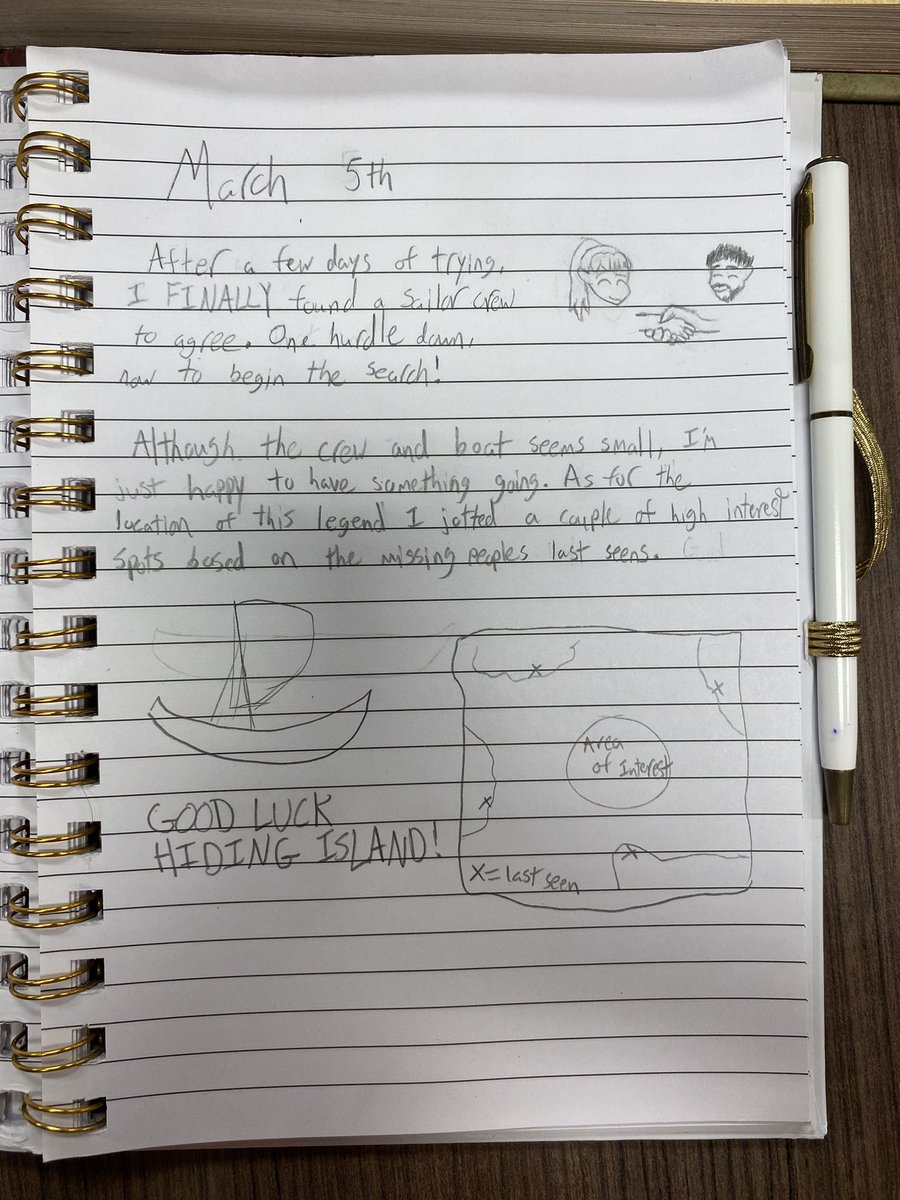 March 5th
After a few days of trying,
I FINALLY found a sailor crew
to agree. One hurdle down,
now to begin the search!
Although the crew and boat seems small, I'm
just happy to have something going. As for the
location of this legend I jotted a couple of high interest
spots based on the missing peoples last seens.
Area
of Interest
X=last seen
GOOD LUCK
HIDING ISLAND!